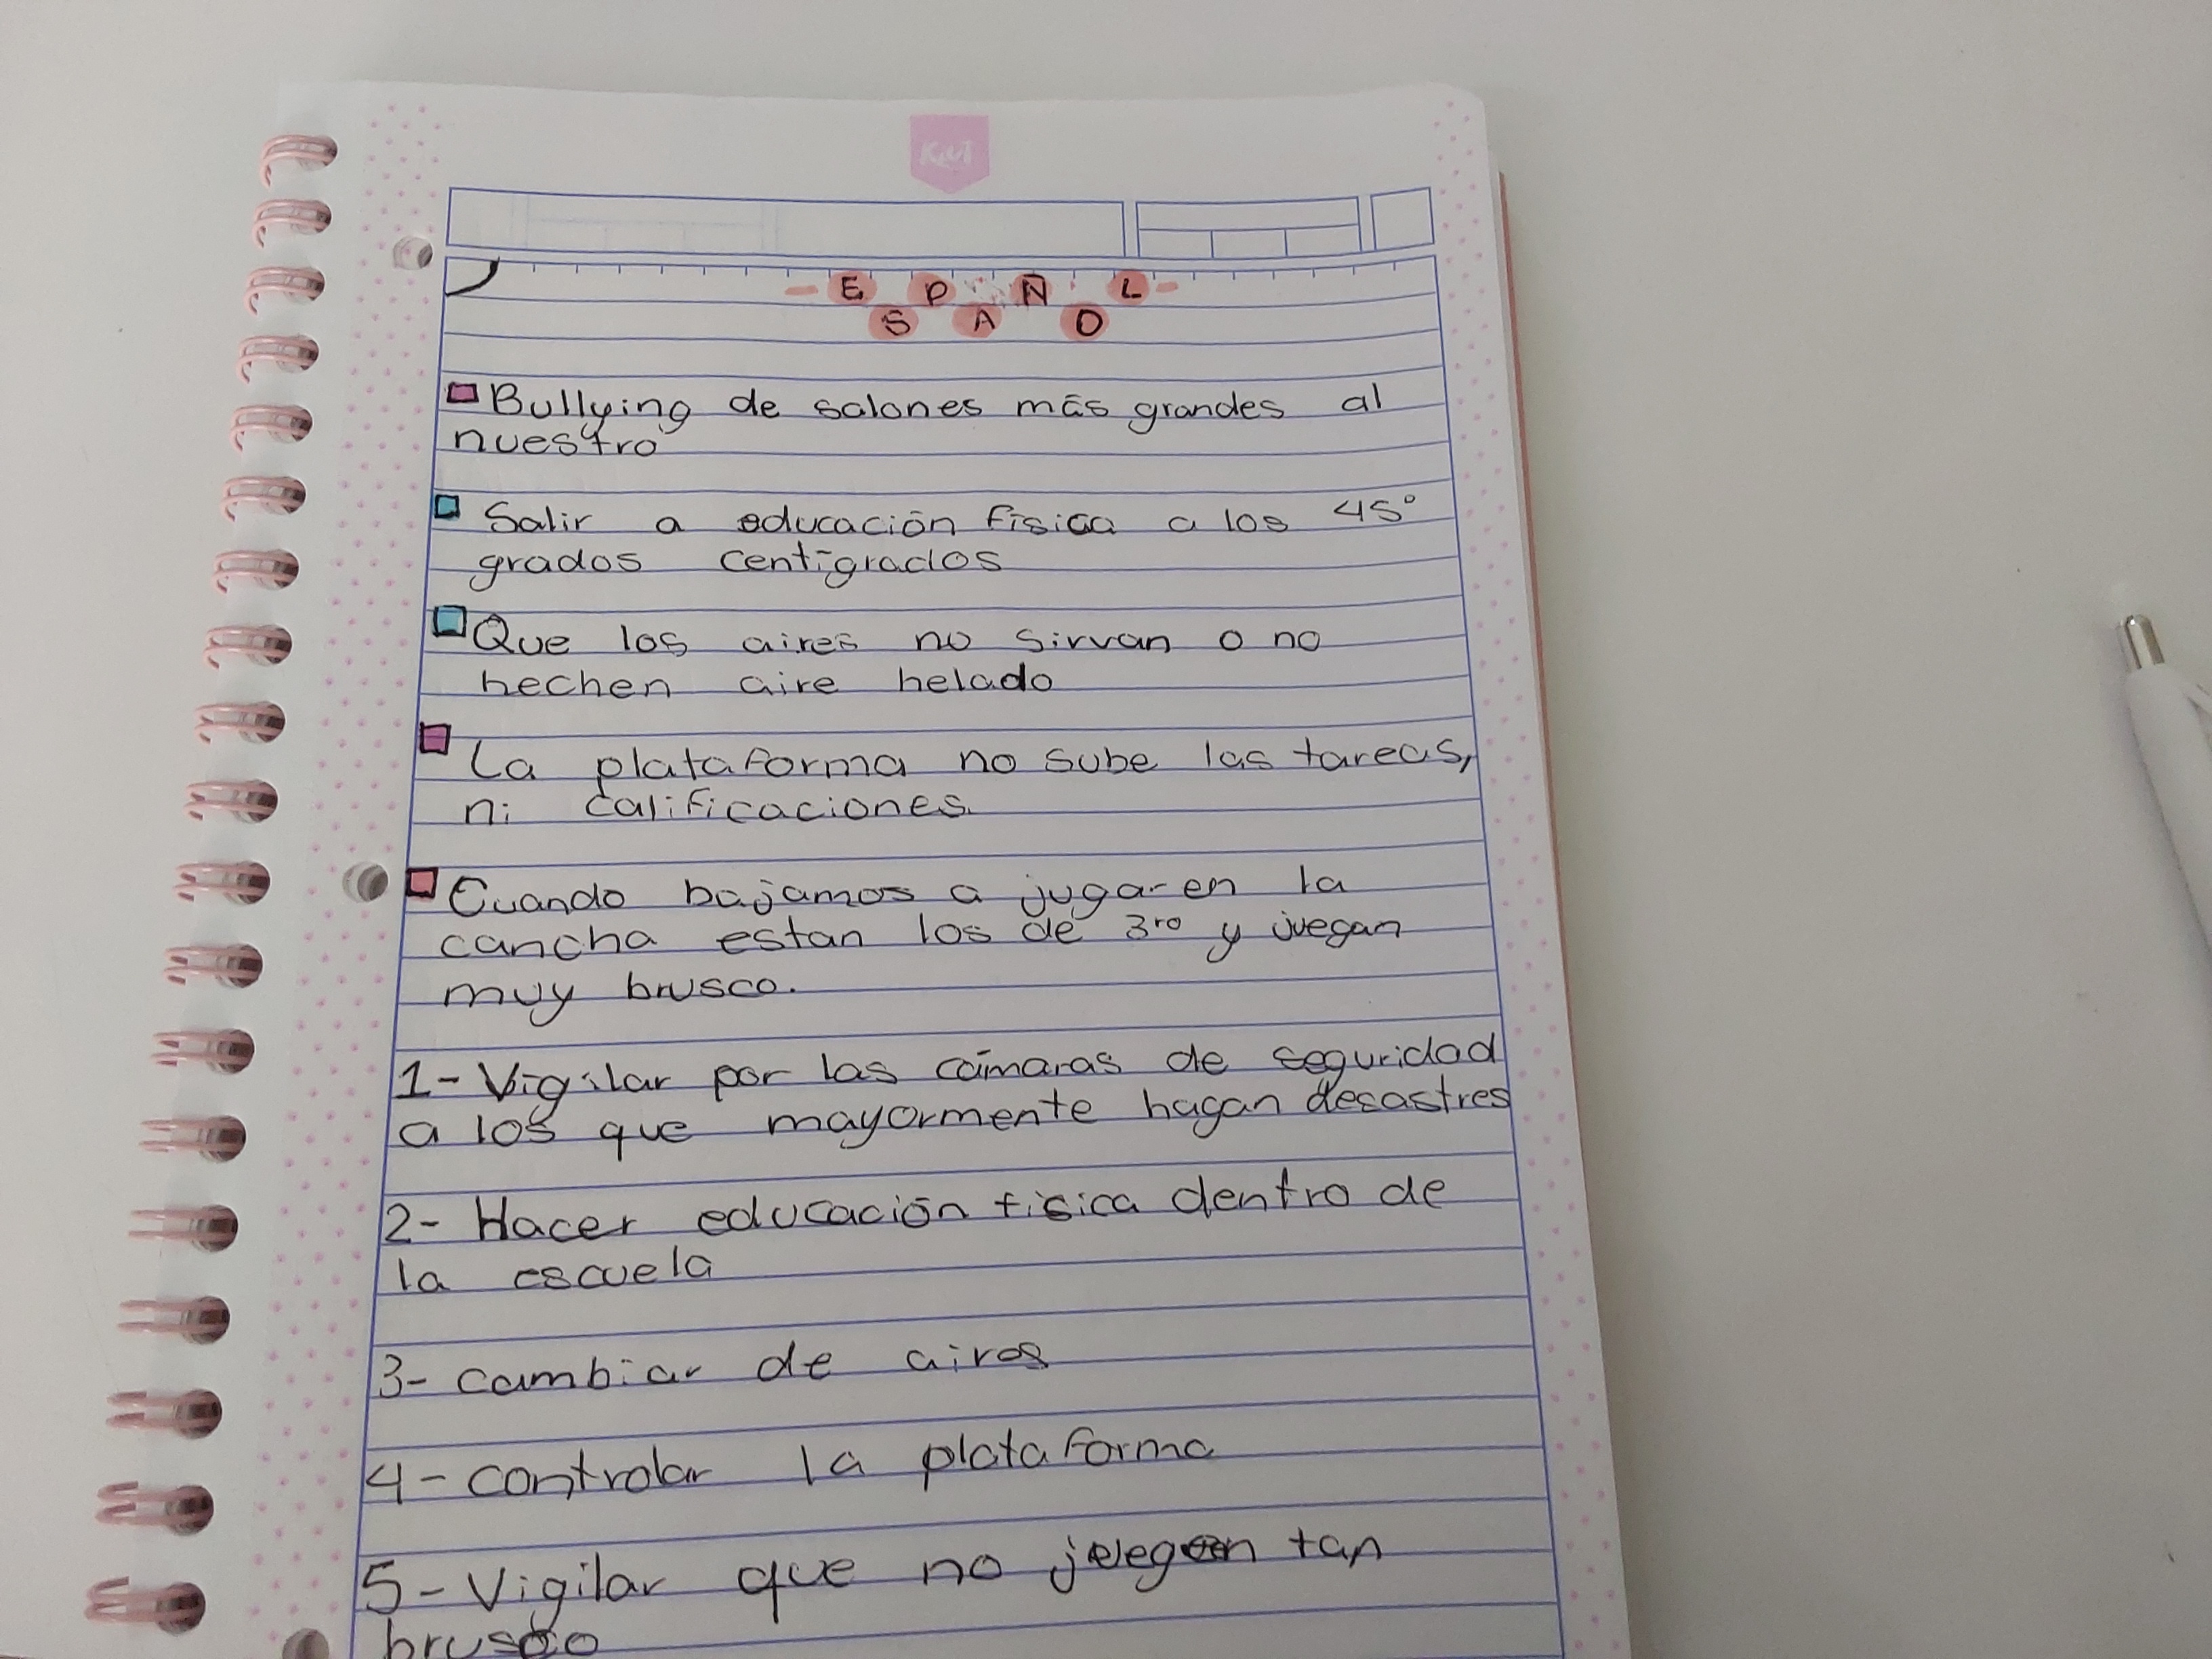 Kiut
- ESPAÑOL -
Bullying de salones más grandes al
nuestro
Salir a educación física a los 45°
grados centígrados
Que los aires no sirvan o no
hechen aire helado
La plataforma no sube las tareas,
ni calificaciones.
Cuando bajamos a jugar en la
cancha estan los de 3ro y juegan
muy brusco.
1- Vigilar por las cámaras de seguridad
a los que mayormente hagan desastres
2- Hacer educación fisica dentro de
la escuela
3- cambiar de aires
4- controlar la plataforma
5- Vigilar que no juegen tan
brusco